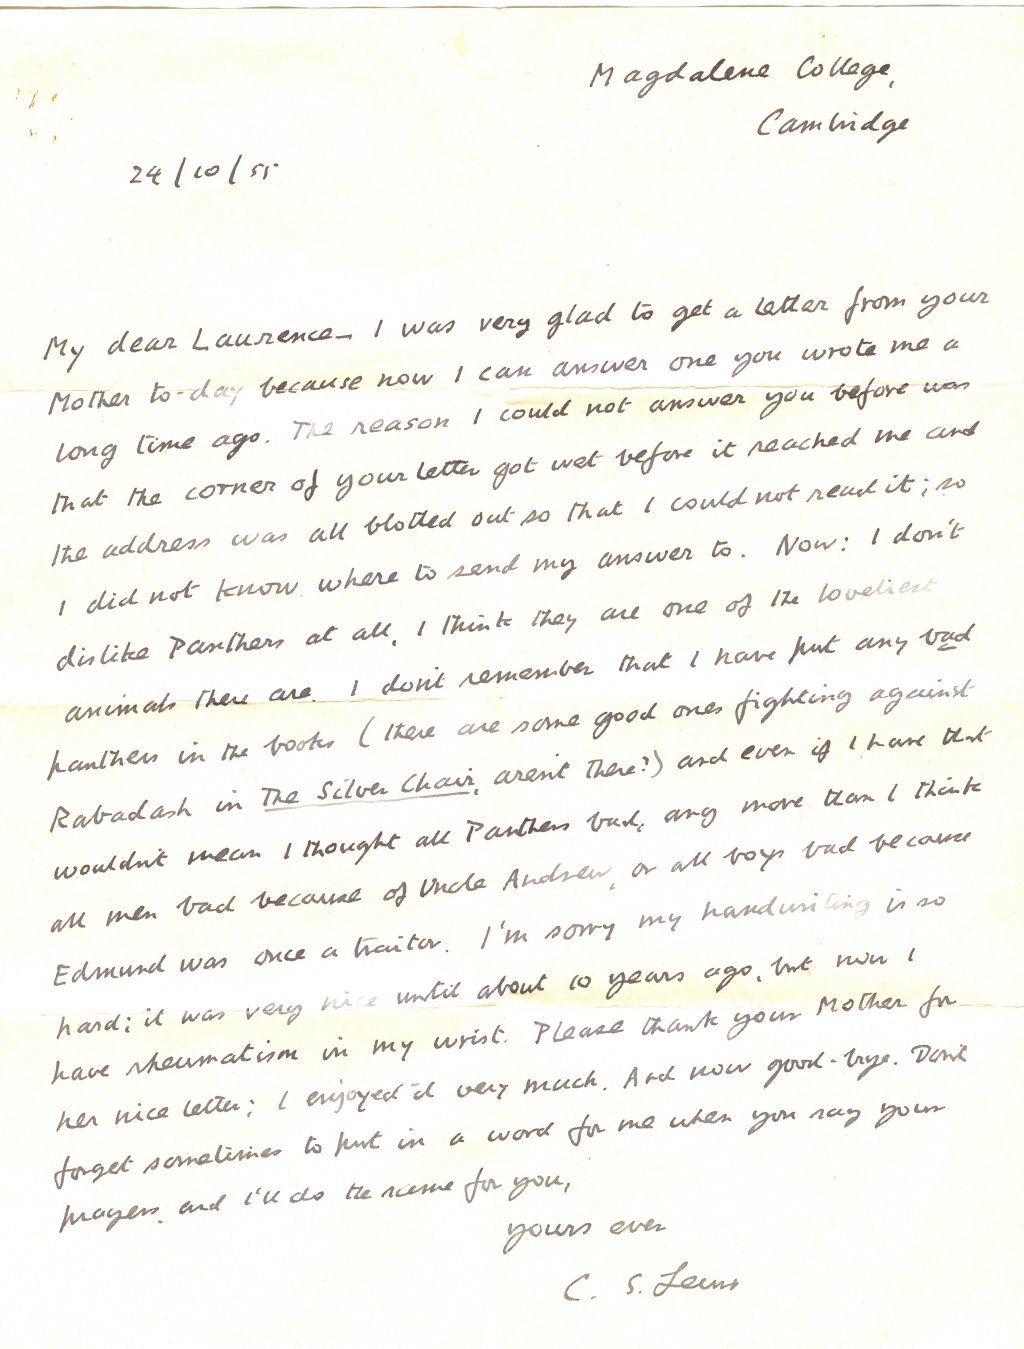 Magdalene College,
Cambridge
24/10/55
My dear Laurence— I was very glad to get a letter from your
Mother to-day because now I can answer one you wrote me a
long time ago. The reason I could not answer you before was
that the corner of your letter got wet before it reached me and
the address was all blotted out so that I could not read it; so
I did not know where to send my answer to. Now: I don't
dislike Panthers at all, I think they are one of the loveliest
animals there are. I don't remember that I have put any bad
panthers in the books (there are some good ones fighting against
Rabadash in The Silver Chair, aren't there?) and even if I have that
wouldn't mean I thought all Panthers bad, any more than I think
all men bad because of Uncle Andrew, or all boys bad because
Edmund was once a traitor. I'm sorry my handwriting is so
hard; it was very nice until about 10 years ago, but now I
have rheumatism in my wrist. Please thank your Mother for
her nice letter; I enjoyed it very much. And now good-bye. Don't
forget sometimes to put in a word for me when you say your
prayers, and I'll do the same for you,
yours ever
C. S. Lewis